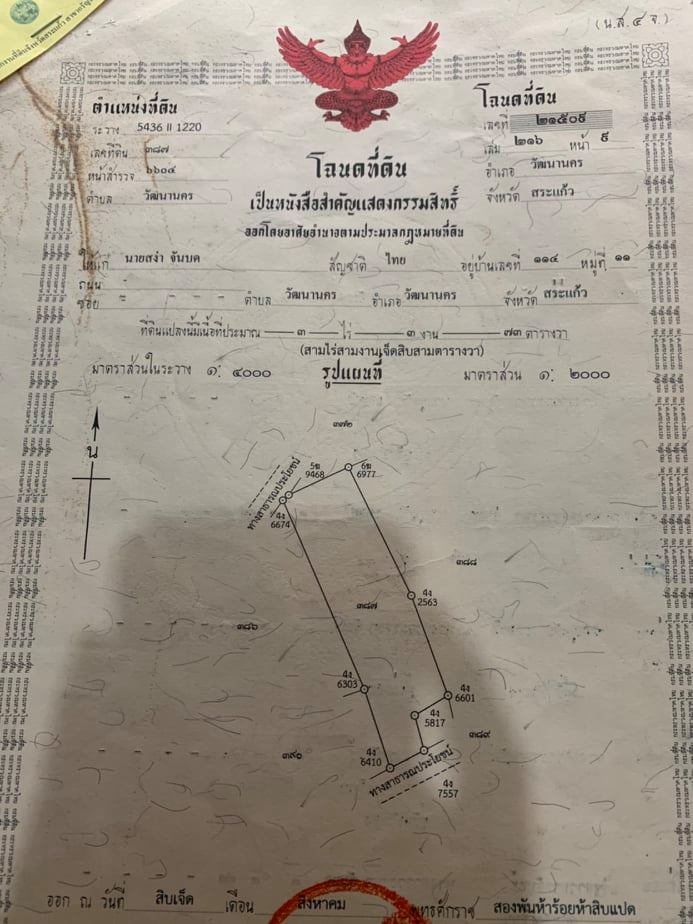 (น.ส.๔ จ.)
ตำแหน่งที่ดิน
ระวาง 5436 II 1220
เลขที่ดิน ๓๘๗
หน้าสำรวจ ๖๖๐๔
ตำบล วัฒนานคร
โฉนดที่ดิน
เลขที่ ๒๑๕๐๙
เล่ม ๒๑๖ หน้า ๙
อำเภอ วัฒนานคร
จังหวัด สระแก้ว
โฉนดที่ดิน
เป็นหนังสือสำคัญแสดงกรรมสิทธิ์
ออกโดยอาศัยอำนาจตามประมวลกฎหมายที่ดิน
ให้แก่ นายสง่า จันบด สัญชาติ ไทย อยู่บ้านเลขที่ ๑๑๔ หมู่ที่ ๑๑
ถนน -
ซอย - ตำบล วัฒนานคร อำเภอ วัฒนานคร จังหวัด สระแก้ว
ที่ดินแปลงนี้มีเนื้อที่ประมาณ ๓ ไร่ ๓ งาน ๗๓ ตารางวา
(สามไร่สามงานเจ็ดสิบสามตารางวา)
มาตราส่วนในระวาง ๑: ๔๐๐๐ รูปแผนที่ มาตราส่วน ๑: ๒๐๐๐
น
๓๗๒
ทางสาธารณประโยชน์
5ฆ
9468
6ฆ
6977
4ง
6674
๓๘๘
4ง
2563
๓๘๗
๓๘๖
4ง
6303
4ง
6601
4ง
5817
๓๘๙
๓๙๐
4ง
6410
ทางสาธารณประโยชน์
4ง
7557
ออก ณ วันที่ สิบเจ็ด เดือน สิงหาคม พุทธศักราช สองพันห้าร้อยห้าสิบแปด